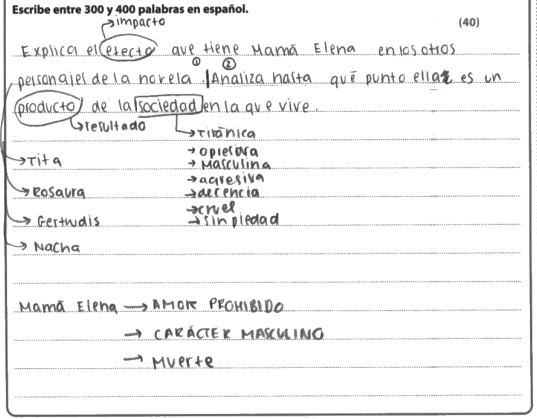 Escribe entre 300 y 400 palabras en español.
impacto
(40)
Explica el efecto que tiene Mamá Elena en los otros
① ②
personajes de la novela. Analiza hasta qué punto ella es un
producto de la sociedad en la que vive.
resultado
→ Tiránica
→ Tita
→ opresora
→ Masculina
→ agresiva
→ Rosaura
→ decencia
→ cruel
→ Gertrudis
→ sin piedad
→ Nacha
Mamá Elena → AMOR PROHIBIDO
→ CARÁCTER MASCULINO
→ Muerte